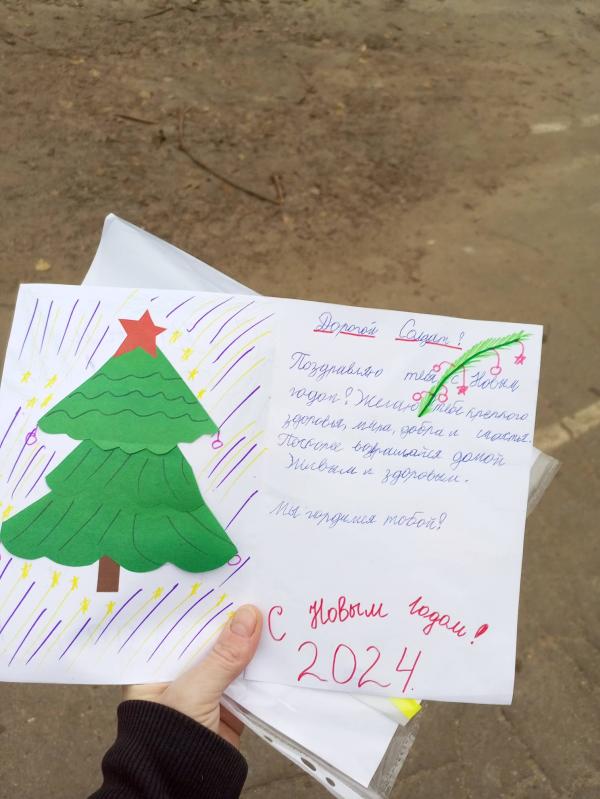 Дорогой Солдат!
Поздравляю тебя с Новым
годом! Желаю тебе крепкого
здоровья, мира, добра и счастья.
Поскорее возвращайся домой
живым и здоровым.
Мы гордимся тобой!
С Новым Годом!
2024.